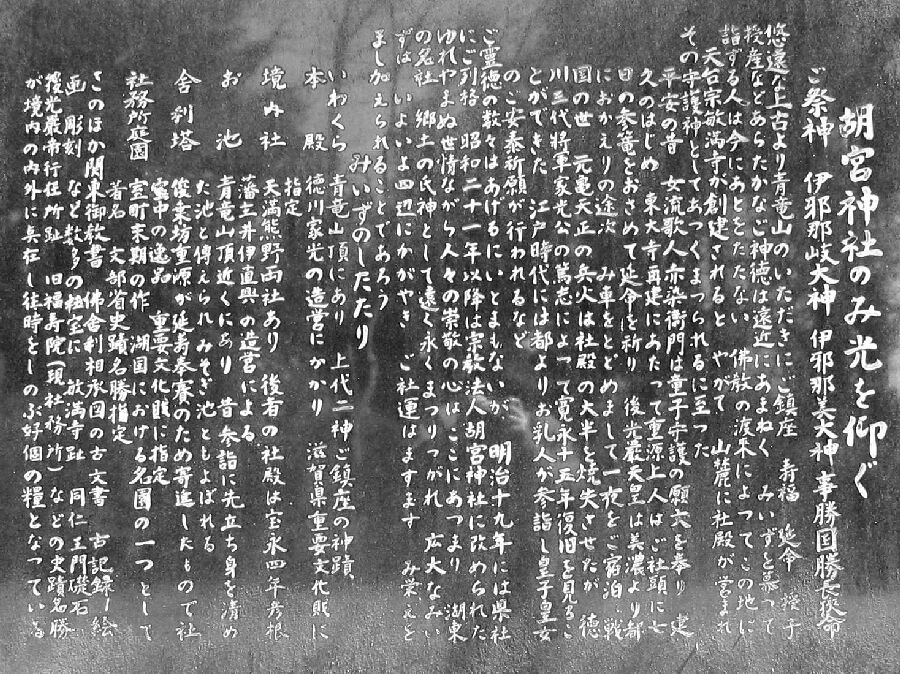 胡宮神社のみ光を仰ぐ
ご祭神 伊邪那岐大神 伊邪那美大神 事勝国勝長狭命
悠遠な上古より青竜山のいただきにご鎮座 寿福 延命 授子
授産などあらたかなご神徳は遠近にあまねく みいずを慕つて
詣ずる人は今にあとをたたない 佛教の渡来によつてこの地に
天台宗敏満寺が創建されると やがて 山麓に社殿が営まれ
その守護神としてあつくまつられるに至つた
平安の昔 女流歌人赤染衛門は童子守護の願文を奉り 建
久のはじめ 東大寺再建にあたつて重源上人は ご社頭に七
日の参篭をおさめて延命を祈り 後光嚴天皇は美濃より都
におかえりの途次 み車をとどめまして一夜をご宿泊 戦
国の世 元亀天正の兵火は社殿の大半を焼失させたが 徳
川三代将軍家光公の篤志によつて寛永十五年復旧を見るこ
とができた 江戸時代には都よりお乳人が参詣し皇子皇女
のご安泰祈願が行われるなど
ご霊徳の数々はあげるにいとまもないが 明治十九年には県社
にご列格 昭和二十一年以降は宗教法人胡宮神社に改められた
ゆれやまぬ世情ながら人々の崇敬の心は ここにあつまり 湖東
の名社 郷土の氏神として遠く永くまつりつがれ 広大なみい
ずは いよいよ四辺にかがやき ご社運はますます み栄えを
まし加えられることであろう
みいずのしたたり
いわくら 青竜山頂にあり 上代二神ご鎮座の神蹟
本殿 徳川家光の造営にかかり 滋賀県重要文化財に
指定
境内社 天満熊野両社あり 後者の社殿は宝永四年彦根
藩主井伊直興の造営による
お池 青竜山頂近くにあり 昔 参詣に先立ち身を清め
た池と傳えられ みそぎ池ともよばれる
舎利塔 俊乗坊重源が延寿奉賽のため寄進したもので社
宝中の逸品 重要文化財に指定
社務所庭園 室町末期の作 湖国における名園の一つとして
著名 文部省史蹟名勝指定
このほか関東御教書 佛舎利相承図の古文書 古記録 絵
画 彫刻 など数多の社宝に 敏満寺趾 同仁王門礎石
後光嚴帝行在所趾 旧福寿院(現社務所)などの史蹟名勝
が境内の内外に点在し往時をしのぶ好個の糧となつている